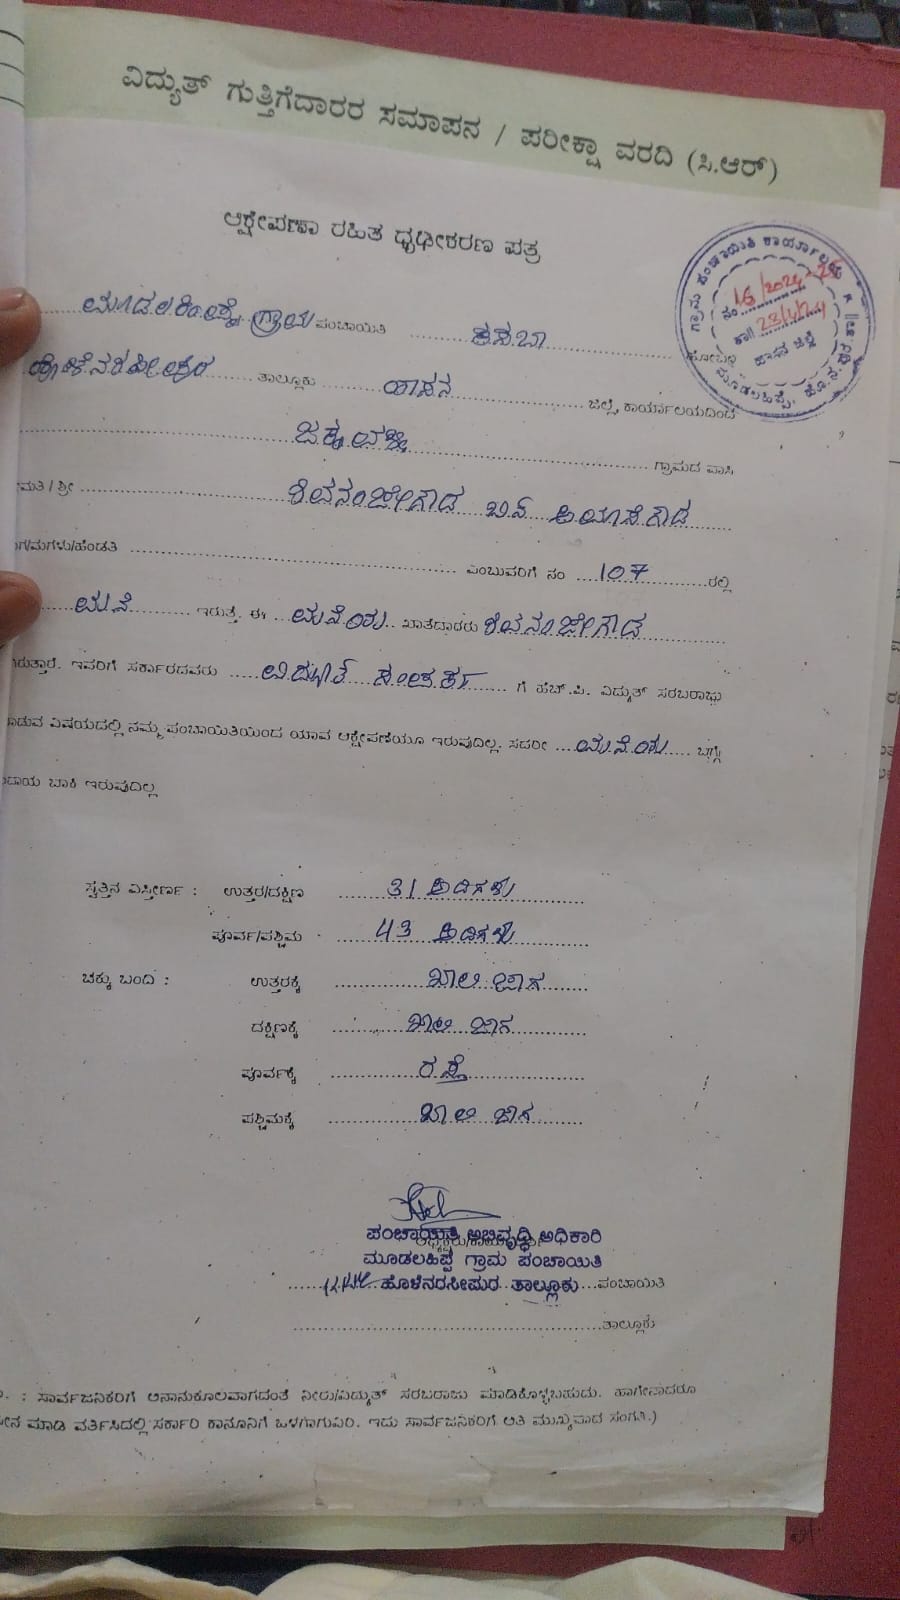 ವಿದ್ಯುತ್ ಗುತ್ತಿಗೆದಾರರ ಸಮಾಪನ / ಪರೀಕ್ಷಾ ವರದಿ (ಸಿ.ಆರ್)
ಆಕ್ಷೇಪಣಾ ರಹಿತ ಧೃಢೀಕರಣ ಪತ್ರ
ಗ್ರಾಮ ಪಂಚಾಯಿತಿ ಕಾರ್ಯಾಲಯ
ನಂ 16/2024-25
ದಿ 23/4/24
ಹಾಸನ ಜಿಲ್ಲೆ
ಮೂಡಲಹಿಪ್ಪೆ, ಹೊ.ನ.ಪುರ
ಗ್ರಾಮ ಪಂಚಾಯಿತಿ ಕಸಬಾ ಹೋಬಳಿ
ತಾಲ್ಲೂಕು ಹಾಸನ ಜಿಲ್ಲೆ, ಕಾರ್ಯಾಲಯದಿಂದ
ಗ್ರಾಮದ ವಾಸಿ
ಮತಿ / ಶ್ರೀ ಶಿವನಂಜೇಗೌಡ ಬಿನ್
ಗ/ಮಗಳು/ಹೆಂಡತಿ ಎಂಬುವರಿಗೆ ನಂ 107 ರಲ್ಲಿ
ಮನೆ ಇರುತ್ತೆ. ಈ ಮನೆಯ ಖಾತೆದಾರರು ಶಿವನಂಜೇಗೌಡ
ರುತ್ತಾರೆ. ಇವರಿಗೆ ಸರ್ಕಾರದವರು ವಿದ್ಯುತ್ ಸಂಪರ್ಕ ಗೆ ಹೆಚ್.ಪಿ. ವಿದ್ಯುತ್ ಸರಬರಾಜು
ಡುವ ವಿಷಯದಲ್ಲಿ ನಮ್ಮ ಪಂಚಾಯಿತಿಯಿಂದ ಯಾವ ಆಕ್ಷೇಪಣೆಯೂ ಇರುವುದಿಲ್ಲ. ಸದರೀ ಮನೆಯ ಬಗ್ಗೆ
ದಾಯ ಬಾಕಿ ಇರುವುದಿಲ್ಲ
ಸ್ವತ್ತಿನ ವಿಸ್ತೀರ್ಣ : ಉತ್ತರ/ದಕ್ಷಿಣ 31 ಅಡಿಗಳು
ಪೂರ್ವ/ಪಶ್ಚಿಮ 43 ಅಡಿಗಳು
ಚಕ್ಕು ಬಂದಿ : ಉತ್ತರಕ್ಕೆ ಖಾಲಿ ಜಾಗ
ದಕ್ಷಿಣಕ್ಕೆ ಖಾಲಿ ಜಾಗ
ಪೂರ್ವಕ್ಕೆ ರಸ್ತೆ
ಪಶ್ಚಿಮಕ್ಕೆ ಖಾಲಿ ಜಾಗ
ಪಂಚಾಯಿತಿ ಅಭಿವೃದ್ಧಿ ಅಧಿಕಾರಿ
ಮೂಡಲಹಿಪ್ಪೆ ಗ್ರಾಮ ಪಂಚಾಯಿತಿ
ಹೊಳೆನರಸೀಪುರ ತಾಲ್ಲೂಕು ಪಂಚಾಯಿತಿ
ತಾಲ್ಲೂಕು
. : ಸಾರ್ವಜನಿಕರಿಗೆ ಅನಾನುಕೂಲವಾಗದಂತೆ ನೀರು/ವಿದ್ಯುತ್ ಸರಬರಾಜು ಮಾಡಿಕೊಳ್ಳಬಹುದು. ಹಾಗೇನಾದರೂ
ಮಾಡಿ ವರ್ತಿಸಿದಲ್ಲಿ ಸರ್ಕಾರಿ ಕಾನೂನಿಗೆ ಒಳಗಾಗುವಿರಿ. ಇದು ಸಾರ್ವಜನಿಕರಿಗೆ ಅತಿ ಮುಖ್ಯವಾದ ಸಂಗತಿ.)